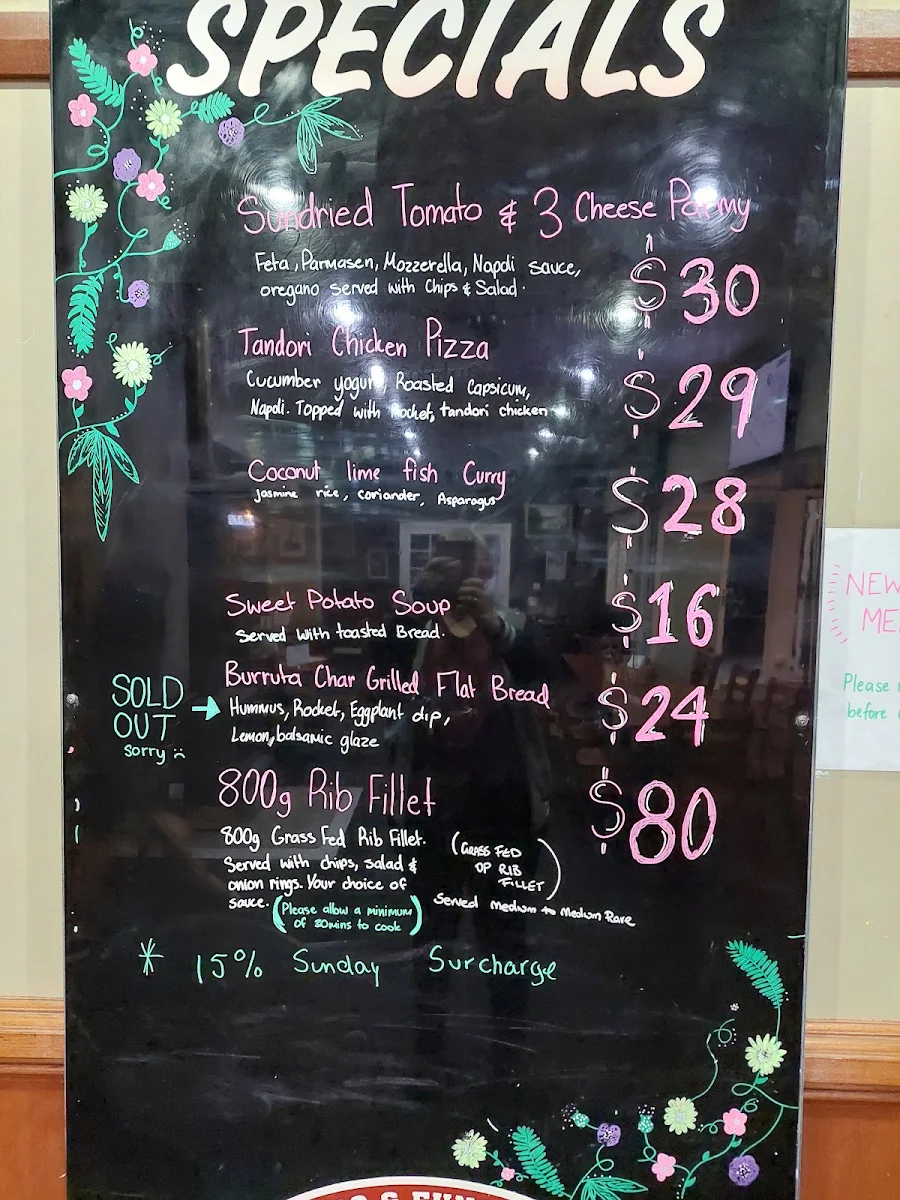 SPECIALS
Sundried Tomato & 3 Cheese Parmy
Feta, Parmasen, Mozzerella, Napoli sauce,
oregano served with Chips & Salad.
$30
Tandori Chicken Pizza
Cucumber yogurt, Roasted Capsicum,
Napoli. Topped with Rocket, tandori chicken
$29
Coconut lime fish Curry
Jasmine rice, coriander, Asparagus
$28
Sweet Potato Soup
Served with toasted Bread.
$16
SOLD
OUT
sorry
Burruta Char Grilled Flat Bread
Hummus, Rocket, Eggplant dip,
Lemon, balsamic glaze
$24
800g Rib Fillet
$80
800g Grass Fed Rib Fillet.
Served with chips, salad &
onion rings. Your choice of
sauce.
(Please allow a minimum
of 30mins to cook)
(GRASS FED
OP RIB
FILLET)
Served medium to Medium Rare
* 15% Sunday Surcharge
NEW
Please
before
& FUN